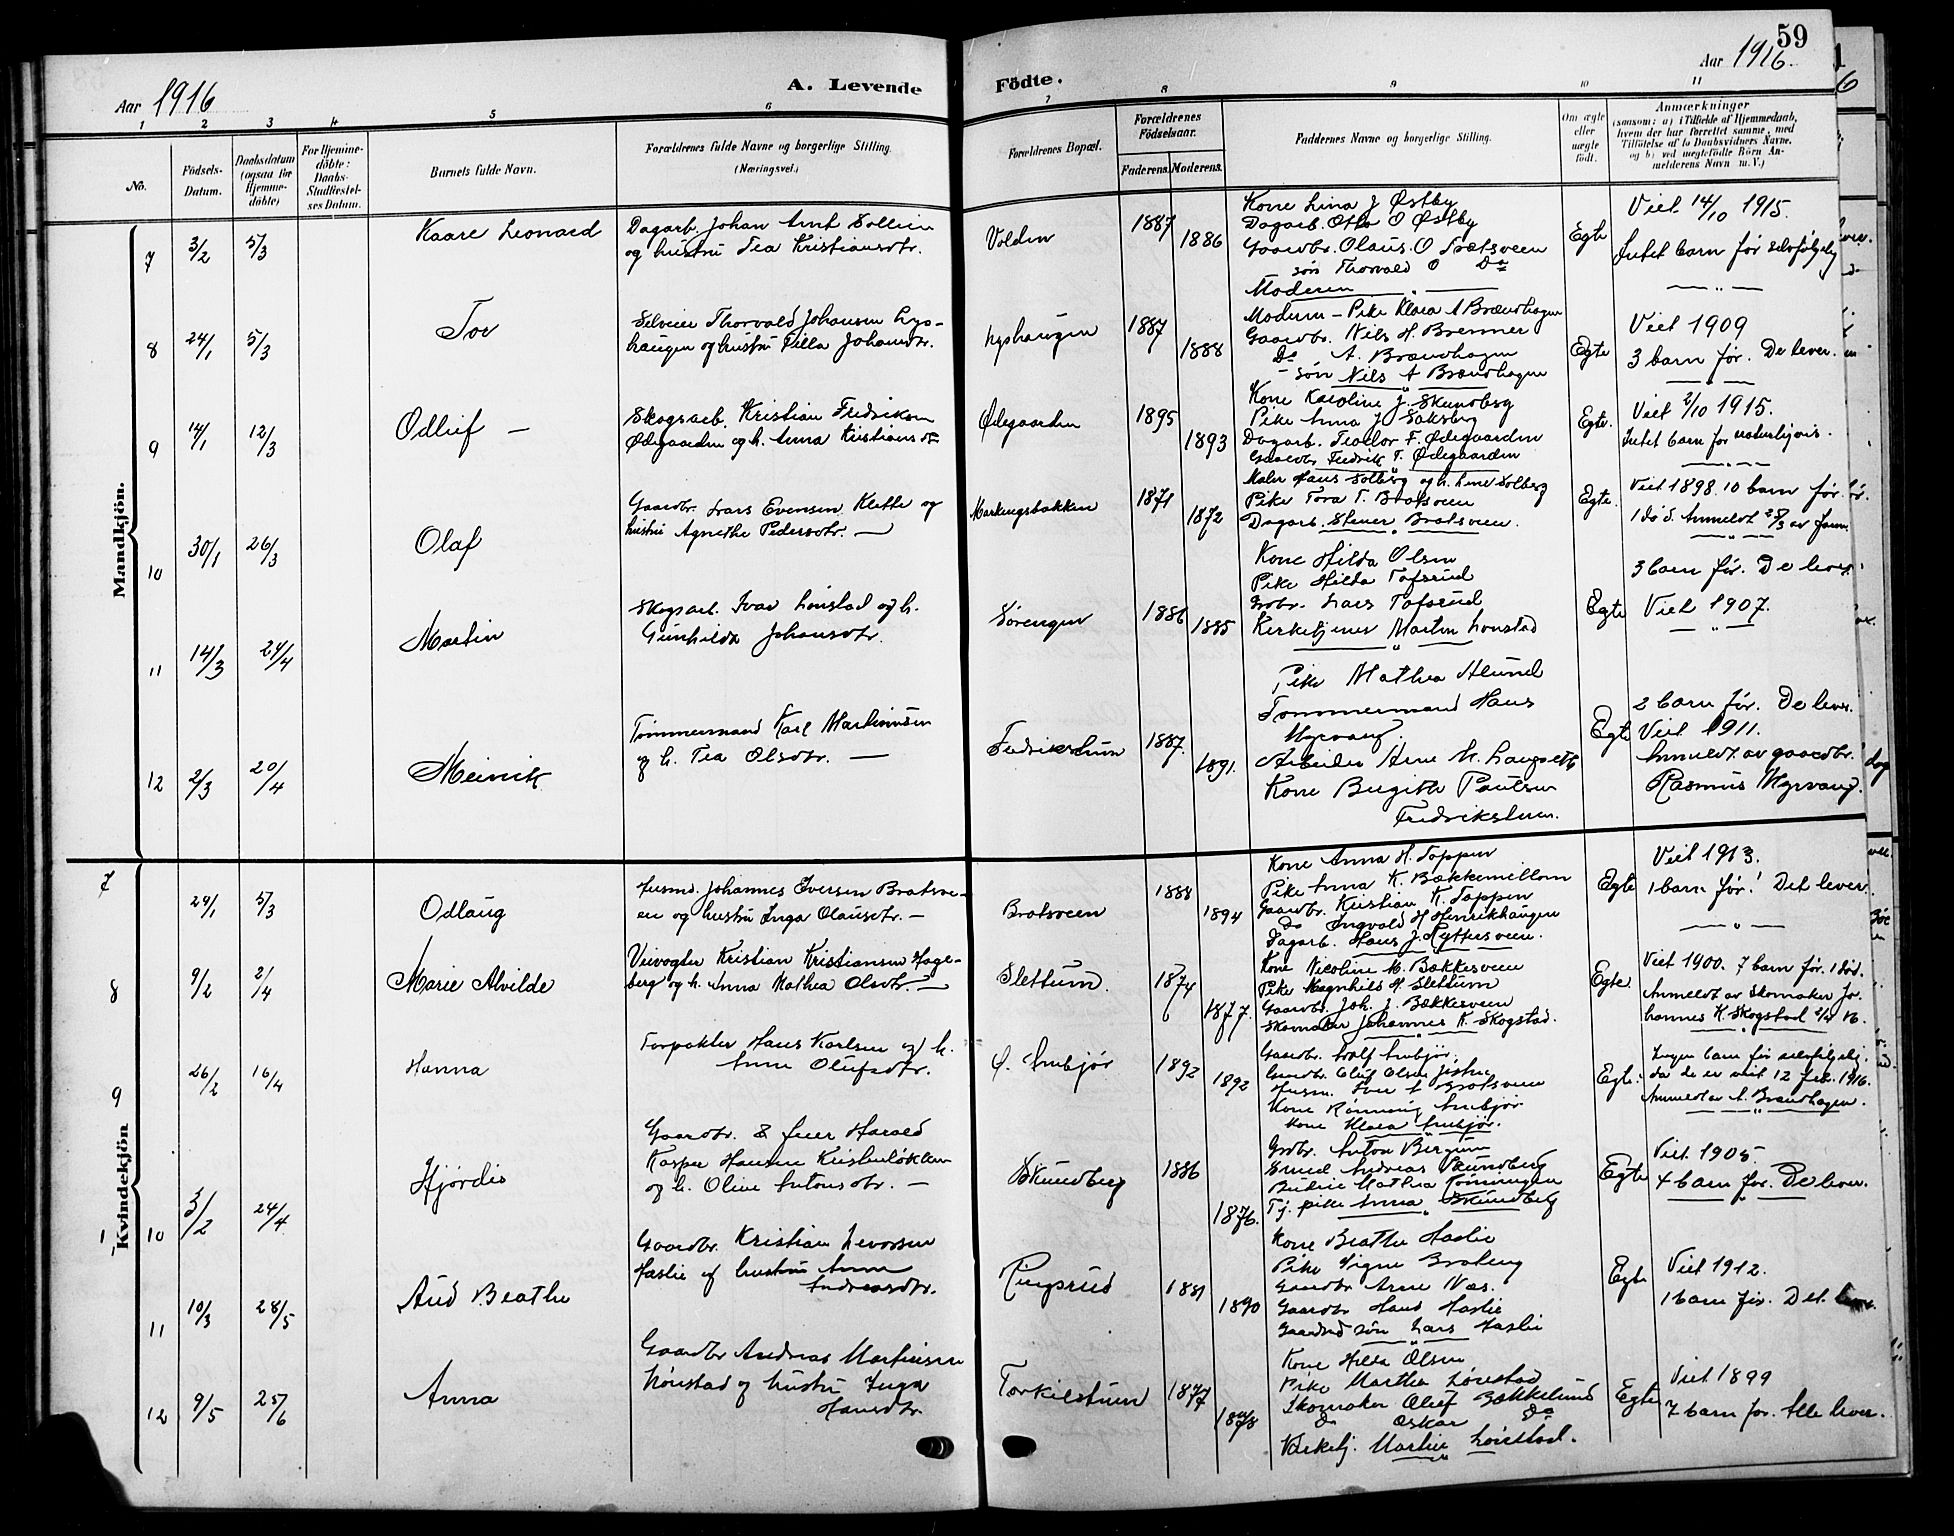 59
Aar 1916
A. Levende
Födte.
Aar 1916
1 2 3 4 5 6 7 8 9 10 11
No.
Födsels-Datum.
Daabsdatum (ogsaa for Hjemme-döbte)
For Hjemme-döbte: Daabs-Stadfæstel-ses Datum.
Barnets fulde Navn.
Forældrenes fulde Navne og borgerlige Stilling.
(Næringsvei.)
Forældrenes Bopæl.
Forældrenes Födselsaar.
Faderens. Moderens.
Faddernes Navne og borgerlige Stilling.
Om ægte eller uægte födt.
Anmærkninger
(saasom: a) i Tilfælde af Hjemmedaab,
hvem der har forrettet samme, med
Tilföielse af to Daabsvidners Navne,
og b) ved uægtefödte Börn An-
melderens Navn m. V.)
Mandkjön.
7 3/2 5/3 Kaare Leonard
Dagarb. Johan Arnt Sollien
og hustru Tea Kristiansdtr.
Volden 1887 1886
Kone Lina J Østby
Dagarb. Otto O Østby
Gaardbr. Olaus O Sætsveen
søn Thorvald O Do
Moderen
Egte
Viet 14/10 1915.
Intet barn før selvfølgelig
8 24/1 5/3 Tor
Selveier Thorvald Johansen Lys-
haugen og hustru Tilla Johansdtr.
Lyshaugen 1887 1888
Moderen - Pike Klara A Brændhagen
Gaardbr. Nils H. Brenner
Do A. Brændhagen
- søn Nils A Brændhagen
Egte
Viet 1909
3 barn før. De lever.
9 14/1 12/3 Odleif —
Skogsarb. Kristian Fredriksen
Ødegaarden og h. Anna Kristiansdtr
Ødegaarden 1895 1893
Kone Karoline J. Skundberg
Pike Anna J Saksberg
Dagarb. Teodor F. Ødegaarden
Gaardbr. Fredrik T. Ødegaarden
Egte.
Viet 2/10 1915.
Intet barn før naturligvis.
10 30/1 26/3 Olaf
Gaardbr. Lars Evensen Klette og
hustru Agnethe Pedersdtr. —
Markengsbakken 1871 1872
Maler Hans Solberg og h. Lene Solberg
Pike Tora T. Bratsveen
Dagarb. Stener Bratsveen.
Egte.
Viet 1898. 10 barn før.
1 død. Anmeldt 25/3 av faren.
11 14/3 24/4 Martin
Skogsarb. Ivar Lønstad og h.
Gunhilda Johansdtr.
Sørengen 1886 1885
Kone Hilda Olsen
Pike Hilda Tofsrud
Grdbr. Lars Tofsrud
Kirketjener Martin Lønstad
Egte
3 barn før. De lever.
Viet 1907.
12 2/3 20/4 Meinik
Tømmermand Karl Martinusen
og h. Tea Olsdtr. —
Fredrikslund 1887. 1891.
Pike Mathea Alund
Tømmermand Hans
Myrvang.
Arbeider Arne M. Langseth
Kone Birgithe Paulsen
Fredrikslund.
Egte
2 barn før. De lever.
Viet 1911.
Anmeldt av gaardbr.
Rasmus Myrvang.
Kvindekjön
7 24/1 5/3 Odlaug
Husmd. Johannes Iversen Bratsve-
en og hustru Inga Olausdtr. —
Bratsveen 1888 1894
Kone Anna H. Toppen
Pike Anna K. Bækkemellom
Gaardbr. Kristian K. Toppen
Do Ingvald H Henrikhaugen
Dagarb. Hans J. Hyttersveen.
Egte
Viet 1913.
1 barn før. Det lever.
8 9/2 2/4 Marie Alvilde
Veivogter Kristian Kristiansen Hage-
berg og h. Anna Mathea Olsdtr. —
Slettum. 1874 1877.
Kone Nicoline M. Bækkesveen
Pike Magnhild H Slettum
Gaardbr. Joh. J. Bækkesveen
Skomaker Johannes K. Skogstad.
Egte.
Viet 1900. 7 barn før. 1 død.
Anmeldt av skomaker Jo-
hannes K. Skogstad 2/4 16.
9 26/2 16/4 Hanna
Forpakter Hans Karlsen og h.
Anne Olufsdtr.
Ø. Aubjør 1892 1892
Gaardbr. Adolf Aubjør.
Husm. Iver A Bratsveen
Kone Rønnaug Aubjør
Kone Klara Aubjør.
Egte.
Ingen barn før selvfølgelig,
da de er viet 12 febr. 1916.
Anmeldt av A. Brændhagen.
10 3/2 24/4 Hjørdis
Gaardbr. & Harald
Kasper Hansen
og h. Oline Antonsdtr. —
Skundberg 1886 1876.
Grdbr. Anton Bergum
Andreas Skundberg
Budeie Mathea Rønningen
Tj. pike Anna Skundberg
Egte
Viet 1905
4 barn før. De lever.
11 10/3 28/5 Aud Beathe
Gaardbr. Kristian Levorsen
Haslie og hustru Anne
Andreasdtr.
Ringsrud 1881 1890
Kone Beathe Haslie
Pike Signe Brateng
Gaardbr Arne Næs.
Gaardbr Hans Haslie
Gaardmd søn Lars Haslie
Egte
Viet 1912.
1 barn før. Det lever.
12 9/5 25/6 Anna
Gaardbr Andreas Martinsen
Lønstad og hustru Inga
Hansdtr.
Torkilstuen 1877 1878
Kone Hilda Olsen
Pike Martha Lønstad
Skomaker Oluf Bækkelund
Do Oskar Do
Kirketj. Martin Lønstad.
Egte
Viet 1899
7 barn før. Alle lever.